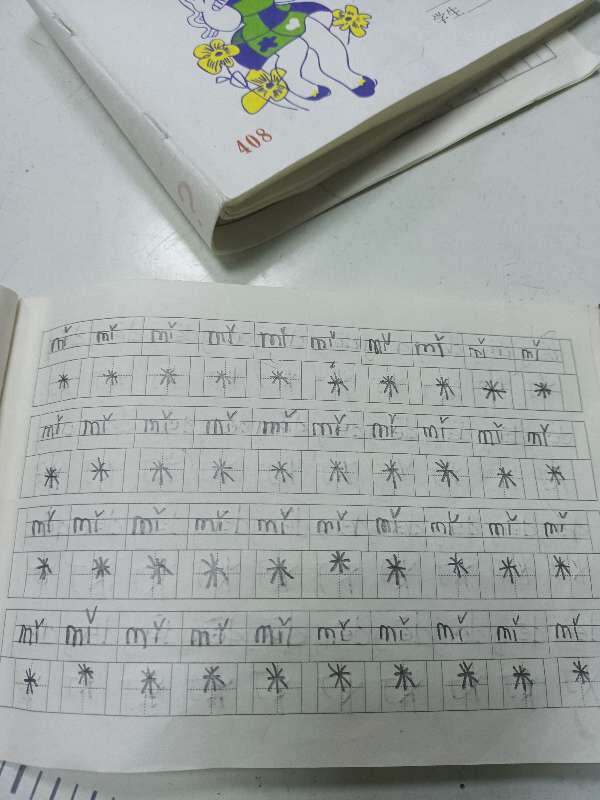 学生
408
2
mǐ mǐ mǐ mǐ mǐ mǐ mǐ mǐ mǐ mǐ
米 米 米 米 米 米 米 米 米 米
mǐ mǐ mǐ mǐ mǐ mǐ mǐ mǐ mǐ mǐ
米 米 米 米 米 米 米 米 米 米
mǐ mǐ mǐ mǐ mǐ mǐ mǐ mǐ mǐ mǐ
米 米 米 米 米 米 米 米 米 米
mǐ mǐ mǐ mǐ mǐ mǐ mǐ mǐ mǐ mǐ
米 米 米 米 米 米 米 米 米 米